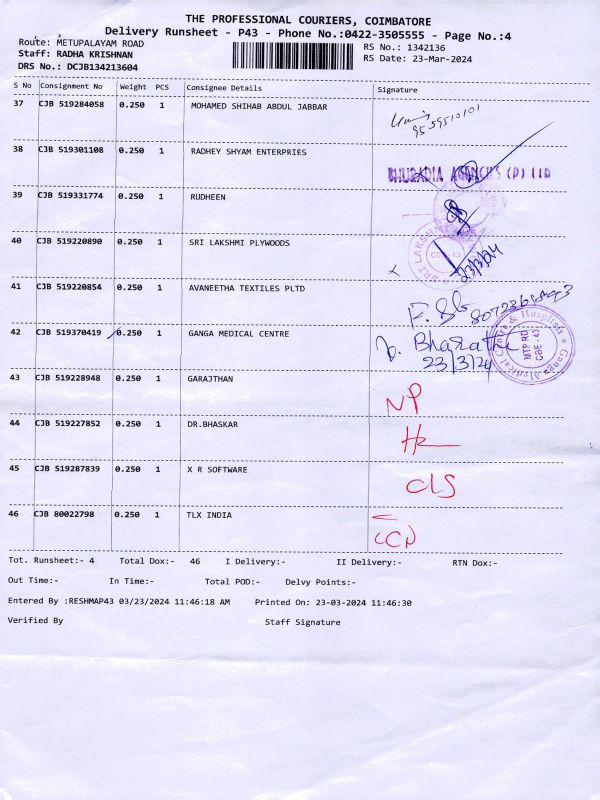 THE PROFESSIONAL COURIERS, COIMBATORE
Delivery Runsheet - P43 - Phone No.:0422-3505555 - Page No.:4
Route: METUPALAYAM ROAD
RS No.: 1342136
Staff: RADHA KRISHNAN
RS Date: 23-Mar-2024
DRS No.: DCJB134213604
S No Consignment No Weight PCS Consignee Details Signature
37 CJB 519284058 0.250 1 MOHAMED SHIHAB ABDUL JABBAR
38 CJB 519301108 0.250 1 RADHEY SHYAM ENTERPRIES
BHURADIA AGENCIES (P) LTD
39 CJB 519331774 0.250 1 RUDHEEN
40 CJB 519220890 0.250 1 SRI LAKSHMI PLYWOODS
23/3/24
41 CJB 519220854 0.250 1 AVANEETHA TEXTILES PLTD
42 CJB 519370419 0.250 1 GANGA MEDICAL CENTRE
Bharathi
23/3/24
Ganga Medical Centre & Hospitals
MTP RD
CBE-43
43 CJB 519228948 0.250 1 GARAJTHAN
NP
44 CJB 519227852 0.250 1 DR.BHASKAR
45 CJB 519287839 0.250 1 X R SOFTWARE
CLS
46 CJB 80022798 0.250 1 TLX INDIA
Tot. Runsheet:- 4 Total Dox:- 46 I Delivery:- II Delivery:- RTN Dox:-
Out Time:- In Time:- Total POD:- Delvy Points:-
Entered By :RESHMAP43 03/23/2024 11:46:18 AM Printed On: 23-03-2024 11:46:30
Verified By Staff Signature